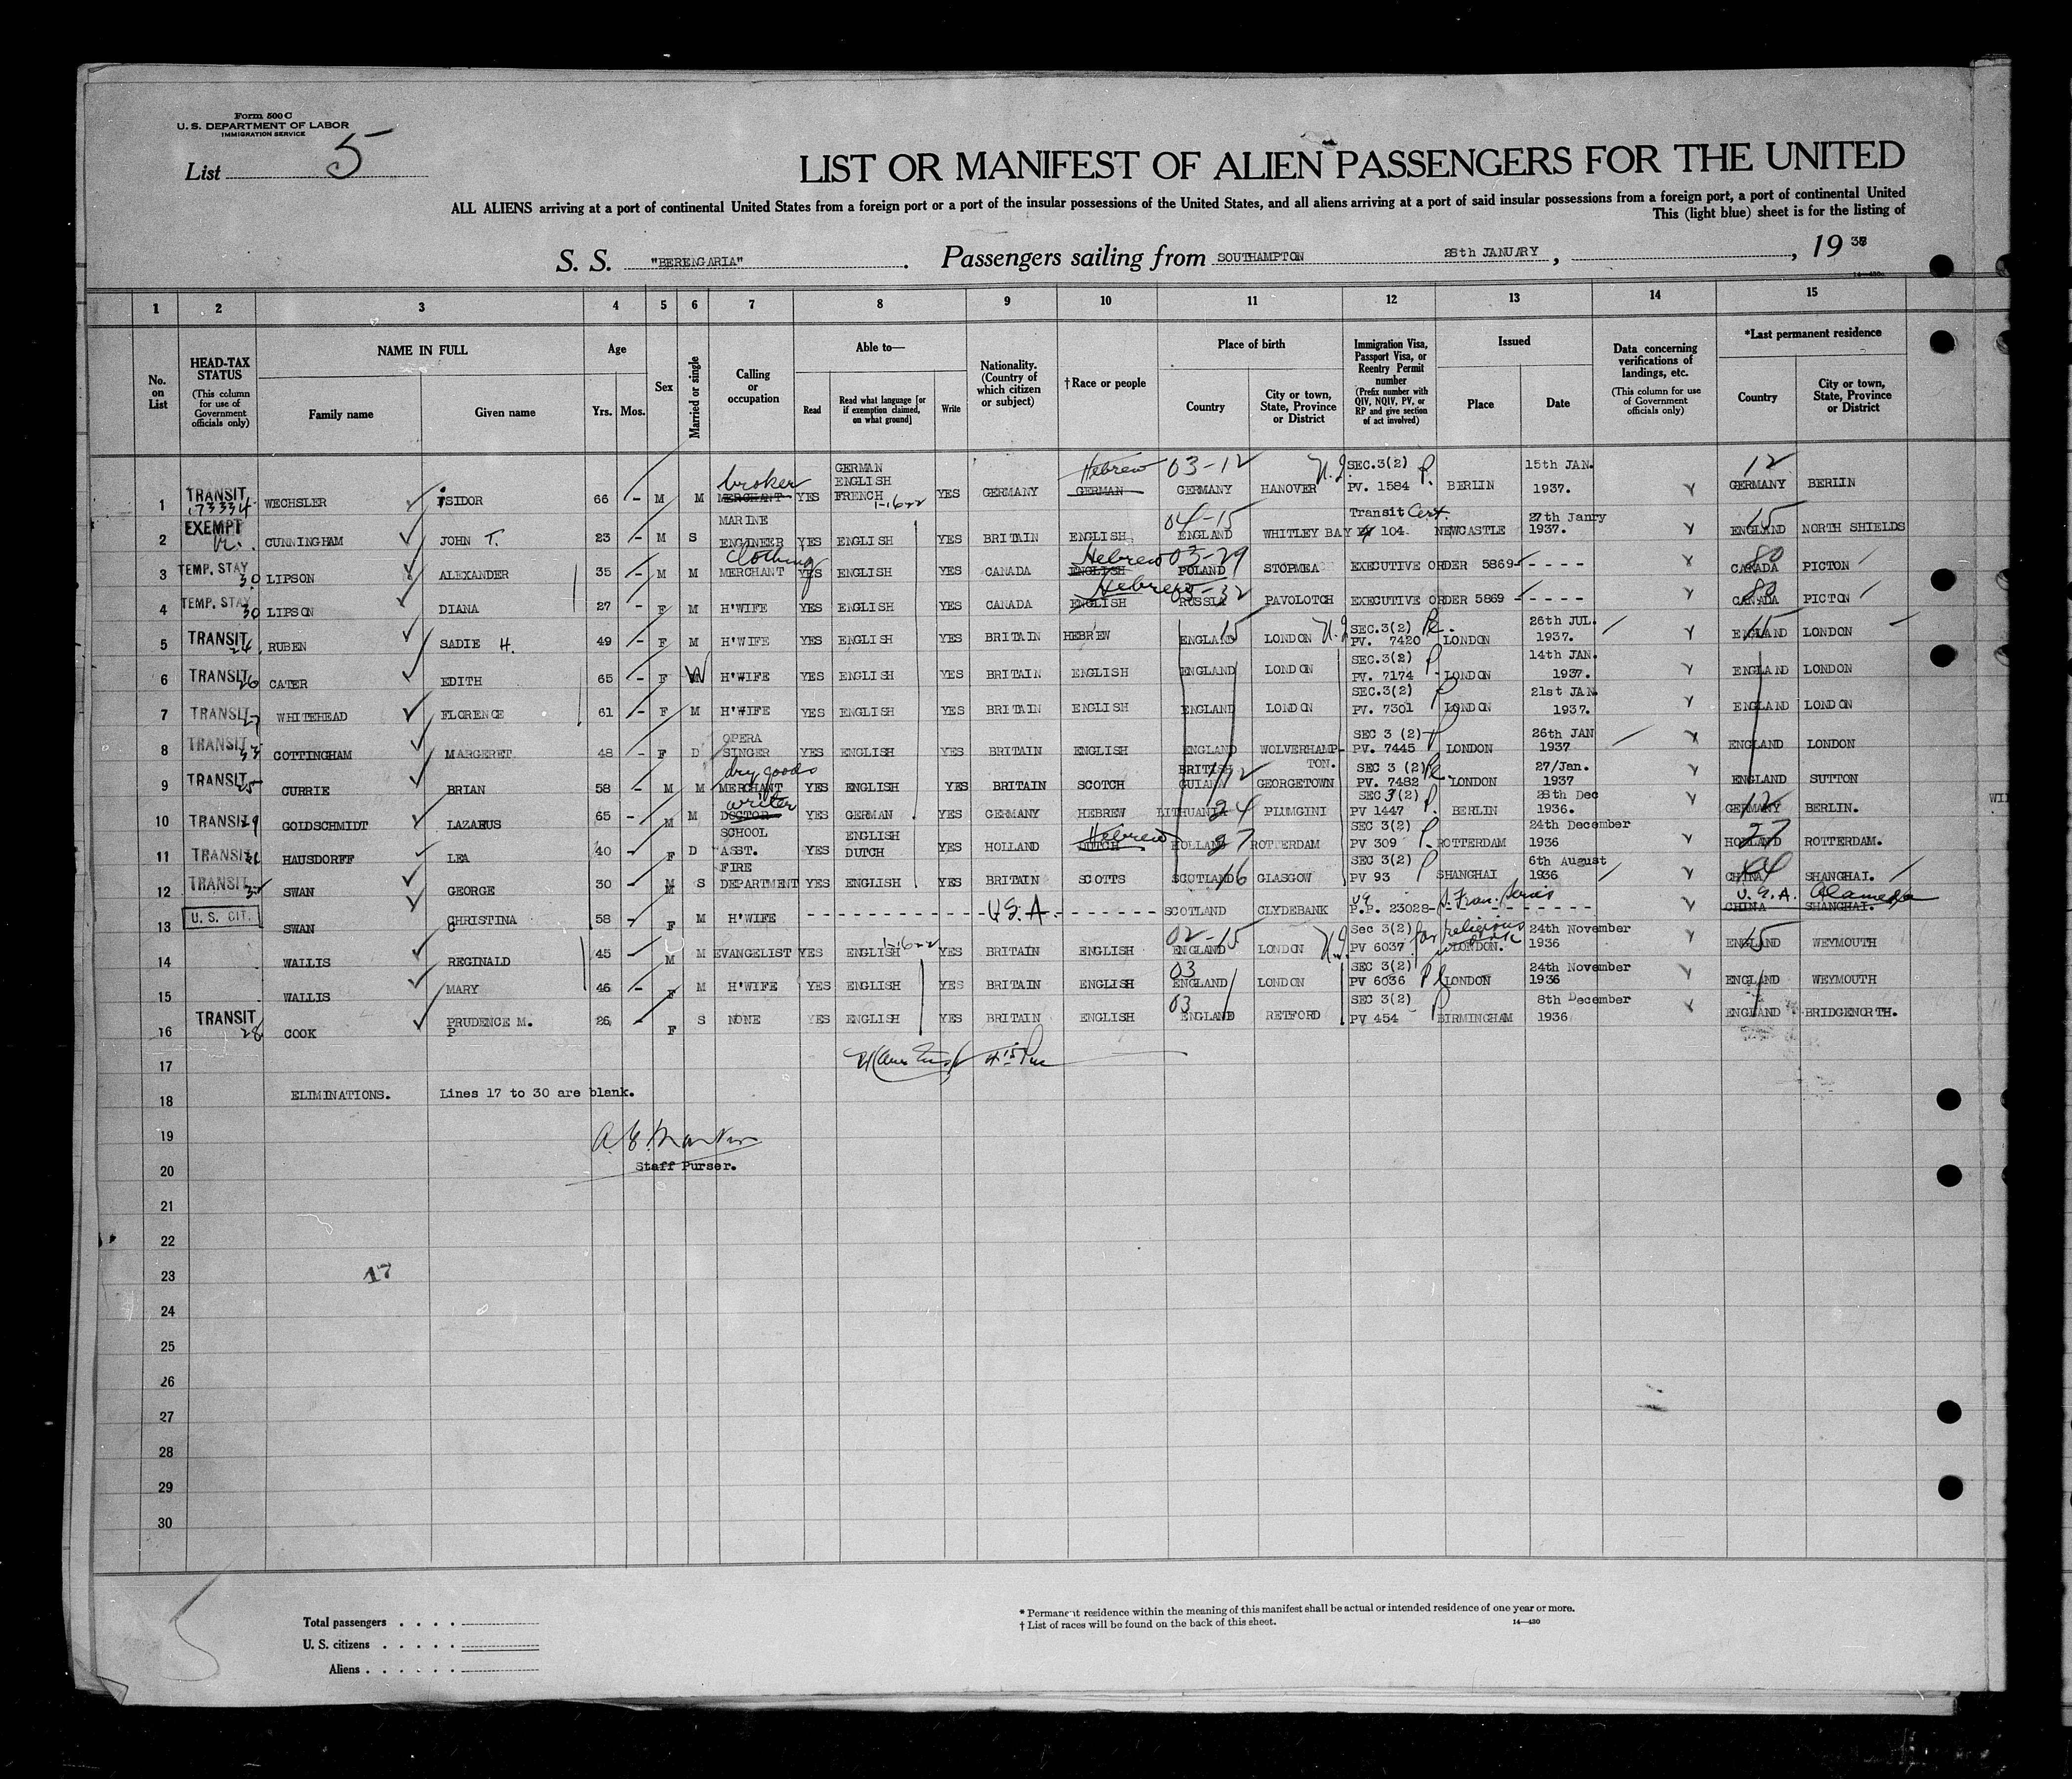 Form 500 C
U. S. DEPARTMENT OF LABOR
IMMIGRATION SERVICE
List 5
LIST OR MANIFEST OF ALIEN PASSENGERS FOR THE UNITED
ALL ALIENS arriving at a port of continental United States from a foreign port or a port of the insular possessions of the United States, and all aliens arriving at a port of said insular possessions from a foreign port, a port of continental United
This (light blue) sheet is for the listing of
S. S. "BERENGARIA". Passengers sailing from SOUTHAMPTON 28th JANUARY, , 19
1 2 3 4 5 6 7 8 9 10 11 12 13 14 15
No. on List
HEAD-TAX STATUS (This column for use of Government officials only)
NAME IN FULL
Family name
Given name
Age
Yrs. Mos.
Sex
Married or single
Calling or occupation
Able to—
Read
Read what language [or if exemption claimed, on what ground]
Write
Nationality. (Country of which citizen or subject)
†Race or people
Place of birth
Country
City or town, State, Province or District
Immigration Visa, Passport Visa, or Reentry Permit number (Prefix number with QIV, NQIV, PV, or RP and give section of act involved)
Issued
Place
Date
Data concerning verifications of landings, etc. (This column for use of Government officials only)
*Last permanent residence
Country
City or town, State, Province or District
1 TRANSIT WECHSLER ISIDOR 66 - M M broker MERCHANT YES GERMAN ENGLISH FRENCH YES GERMANY Hebrew GERMAN 03-12 GERMANY HANOVER SEC.3(2) PV. 1584 BERLIN 15th JAN. 1937. 12 GERMANY BERLIN
2 EXEMPT CUNNINGHAM JOHN T. 23 - M S MARINE ENGINEER YES ENGLISH YES BRITAIN ENGLISH 04-15 ENGLAND WHITLEY BAY Transit Cert. 104 NEWCASTLE 27th Janry 1937. 15 ENGLAND NORTH SHIELDS
3 TEMP. STAY 30 LIPSON ALEXANDER 35 - M M clothing MERCHANT YES ENGLISH YES CANADA Hebrew ENGLISH 03-29 POLAND STOPMEA EXECUTIVE ORDER 5869 - - - - 80 CANADA PICTON
4 TEMP. STAY 30 LIPSON DIANA 27 - F M H'WIFE YES ENGLISH YES CANADA Hebrew ENGLISH RUSSIA PAVOLOTCH EXECUTIVE ORDER 5869 - - - - 80 CANADA PICTON
5 TRANSIT 24 RUBEN SADIE H. 49 - F M H'WIFE YES ENGLISH YES BRITAIN HEBREW ENGLAND 15 LONDON SEC.3(2) PV. 7420 LONDON 26th JUL. 1937. 15 ENGLAND LONDON
6 TRANSIT 26 CATER EDITH 65 - F W H'WIFE YES ENGLISH YES BRITAIN ENGLISH ENGLAND LONDON SEC.3(2) PV. 7174 LONDON 14th JAN. 1937. ENGLAND LONDON
7 TRANSIT 27 WHITEHEAD FLORENCE 61 - F M H'WIFE YES ENGLISH YES BRITAIN ENGLISH ENGLAND LONDON SEC.3(2) PV. 7301 LONDON 21st JAN. 1937. ENGLAND LONDON
8 TRANSIT 33 COTTINGHAM MARGERET 48 - F D OPERA SINGER YES ENGLISH YES BRITAIN ENGLISH ENGLAND WOLVERHAMP-TON. SEC 3 (2) PV. 7445 LONDON 26th JAN 1937 ENGLAND LONDON
9 TRANSIT 25 CURRIE BRIAN 58 - M M dry goods MERCHANT YES ENGLISH YES BRITAIN SCOTCH BRITISH GUIANA GEORGETOWN SEC 3 (2) PV. 7482 LONDON 27/Jan. 1937 ENGLAND SUTTON
10 TRANSIT 29 GOLDSCHMIDT LAZARUS 65 - M M writer DOCTOR YES GERMAN YES GERMANY HEBREW LITHUANIA 24 PLUMGINI SEC 3(2) PV 1447 BERLIN 28th Dec 1936. 12 GERMANY BERLIN.
11 TRANSIT HAUSDORFF LEA 40 - F D SCHOOL ASST. YES ENGLISH DUTCH YES HOLLAND Hebrew DUTCH HOLLAND 27 ROTTERDAM SEC 3(2) PV 309 ROTTERDAM 24th December 1936 27 HOLLAND ROTTERDAM.
12 TRANSIT SWAN GEORGE 30 - M S FIRE DEPARTMENT YES ENGLISH YES BRITAIN SCOTTS SCOTLAND 16 GLASGOW SEC 3(2) PV 93 SHANGHAI 6th August 1936 CHINA SHANGHAI.
13 U. S. CIT. SWAN CHRISTINA 58 - F M H'WIFE - - - U.S.A. - - - SCOTLAND CLYDEBANK P.P. 23028 - - - U.S.A. Alameda CHINA SHANGHAI.
14 WALLIS REGINALD 45 M M EVANGELIST YES ENGLISH YES BRITAIN ENGLISH 02-15 ENGLAND LONDON Sec 3(2) PV 6037 for religious work LONDON. 24th November 1936 15 ENGLAND WEYMOUTH
15 WALLIS MARY 46 - F M H'WIFE YES ENGLISH YES BRITAIN ENGLISH 03 ENGLAND LONDON SEC 3(2) PV 6036 LONDON 24th November 1936 ENGLAND WEYMOUTH
16 TRANSIT 28 COOK PRUDENCE M. 26 - F S NONE YES ENGLISH YES BRITAIN ENGLISH 03 ENGLAND RETFORD SEC 3(2) PV 454 BIRMINGHAM 8th December 1936 ENGLAND BRIDGENORTH.
17
18 ELIMINATIONS. Lines 17 to 30 are blank.
19
20 Staff Purser.
21
22
23 17
24
25
26
27
28
29
30
Total passengers . . . .
U. S. citizens . . . . .
Aliens . . . . . .
* Permanent residence within the meaning of this manifest shall be actual or intended residence of one year or more.
† List of races will be found on the back of this sheet.
14—430